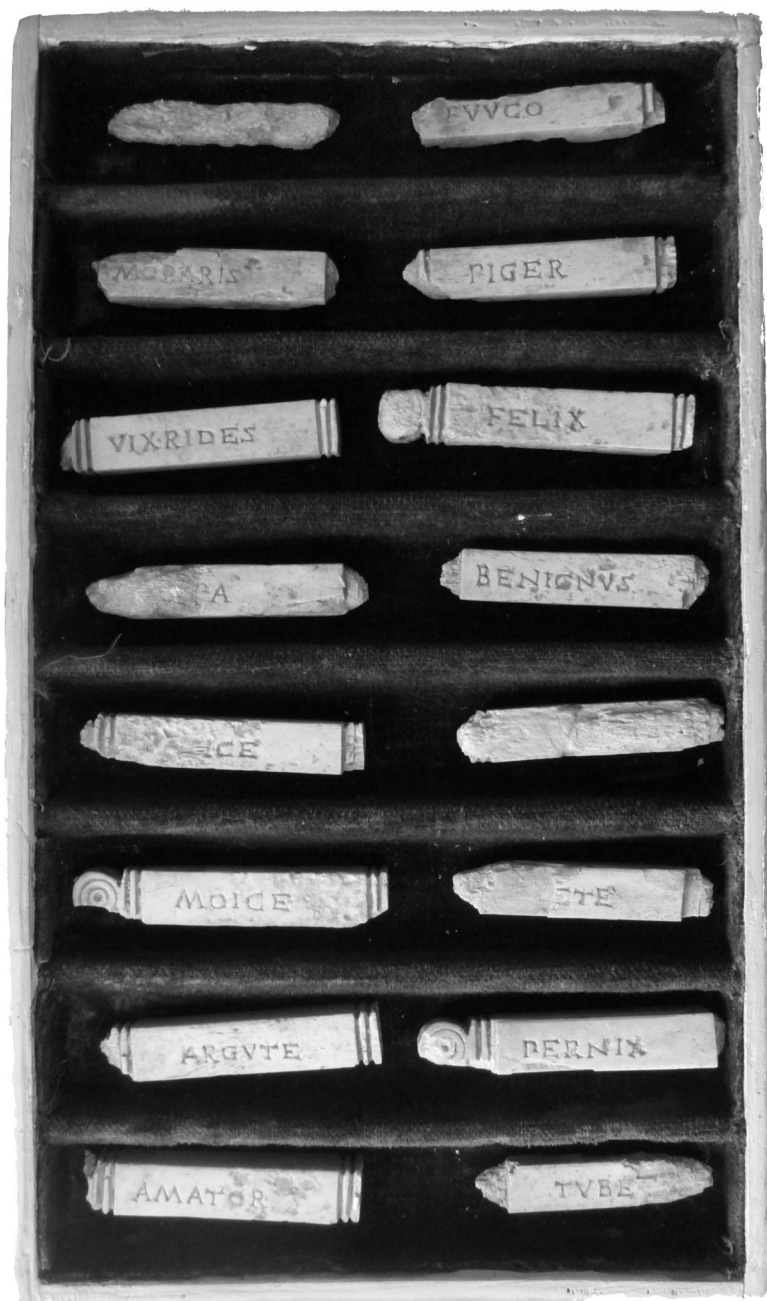 PIGER
VIX·RIDES
FELIX
A
BENIGNVS
CE
MOICE
TE
ARGVTE
PERNIX
AMATOR
TVBE